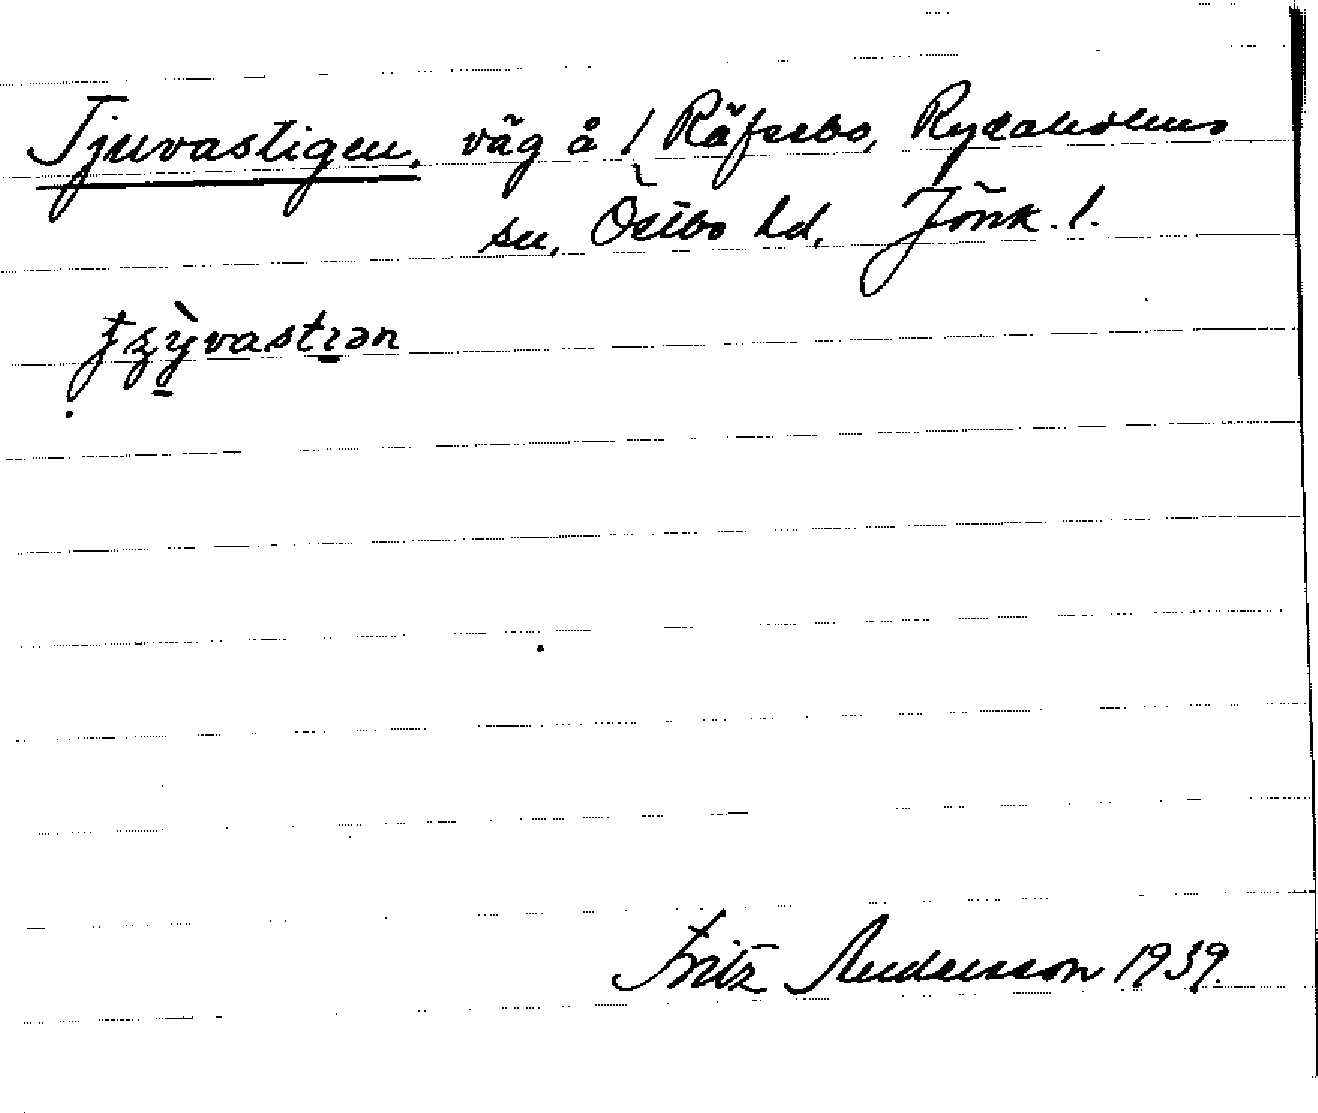 Tjuvastigen, väg å 1 Räfsebo, Rydaholms
sn, Östbo hd, Jönk. l.
Fritz Andersson 1939.